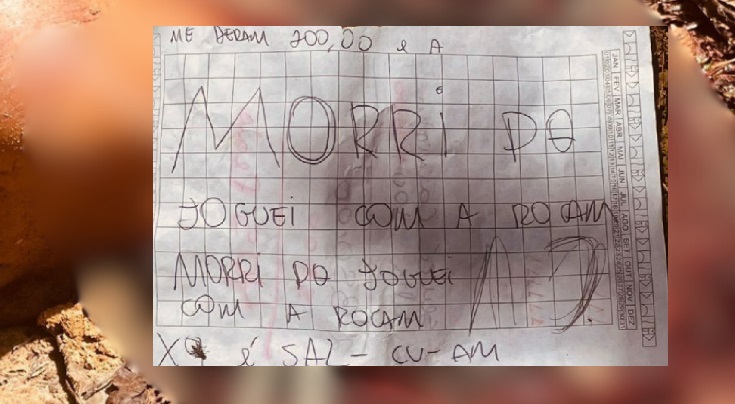 ME DERAM 200,00 e A
MORRi PQ
JOGUEi COM A ROCAM
MORRi PQ JOGUEi
COM A ROCAM
é SAL - CU-AM
JAN FEV MAR ABR MAI JUN JUL AGO SET OUT NOV DEZ